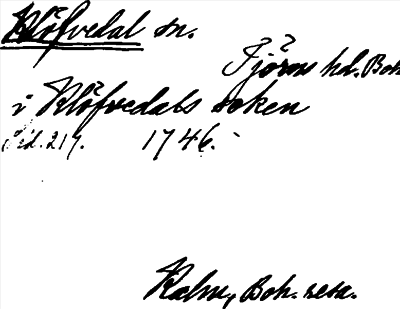 Klöfvedal sn.
Tjörns hd. Boh.
i Klöfvedals soken
Sid. 219. 1746.
Kalm, Boh. resa.